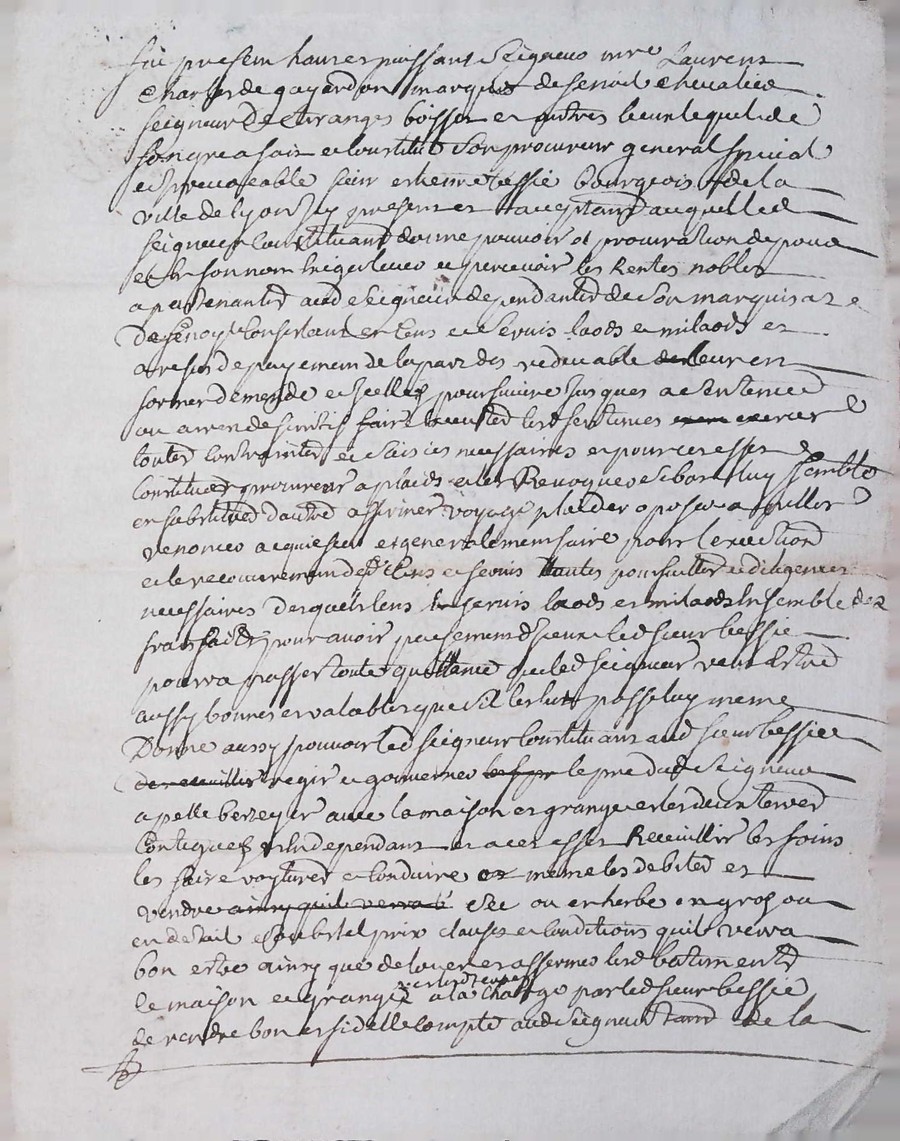 fut present haut et puissant Seigneur mre Laurens
Charles de gayardon marquis de fenoil chevalier
Seigneur De Tiranges boisset et autres lieux lequel de
son gre a fait et constitué Son procureur general special
et irrevocable sieur estienne bessié bourgeois de la
ville de lyon Icy present et acceptant auquel led
seigneur constituant donne pouvoir et procuration de pour
et en son nom exiger lever et percevoir les Rentes nobles
apartenantes aud Seigneur dependantes de Son marquisaz
De fenoyl Consistant en Cens et servis laods et milaods et
a refus de payement de la part des redevable en
former demande et Icelles poursuivre Jusques a Sentence
ou arrest definitifs faire executer lesd sentences exercer
toutes contraintes et saisies necessaires et pour ces effets
Constituer procureur a plaids et les Revoquer si bon luy semble
en substituer d'autre affirmer voyage plaider oposer apeller
renoncer acquiescer et generalement faire pour l'execution
et le recouvrement desd Cens et servis toutes poursuittes et diligences
necessaires desquels Cens servis laods et milaods Ensemble des
frais faits pour avoir payement d'Iceux led sieur bessié
pourra passer toute quittance que led seigneur veut Estre
aussy bonnes et valables que s'il les eut passé luy meme
Donne aussy pouvoir led seigneur Constituant aud sieur bessié
de receuillir regir et gouverner le pré dud Seigneur
apellé berzeyir avec la maison et grange et les deux terres
Contigues et En dependant et a cet effet Receuillir les foins
les faire voyturer et conduire meme les debiter et
vendre ainsy quil verra sec ou en herbe en gros ou
en detail Sous tel prix clauses et conditions quil verra
bon estre ainsy que de louer et affermer lesd batiments
et lesd terres
de maison et grange a la charge par led sieur bessié
de rendre bon et fidelle compte aud Seigneur tant de la